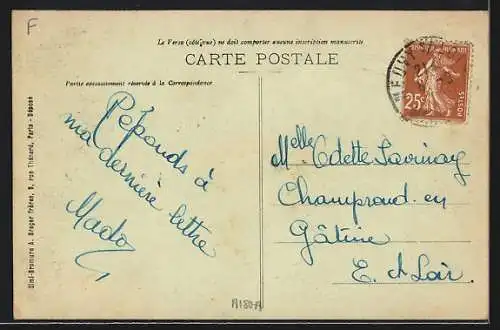 F
Le Verso (côté vue) ne doit comporter aucune inscription manuscrite
CARTE POSTALE
Partie exclusivement réservée à la Correspondance
Réponds à
ma dernière lettre
Mado
Melle Odette Savinay
Champrond en
Gâtine
E. et Loir
25c
POSTES
Simi-Bromure A. Breger Frères, 9, rue Thénard, Paris - Déposé
A180A